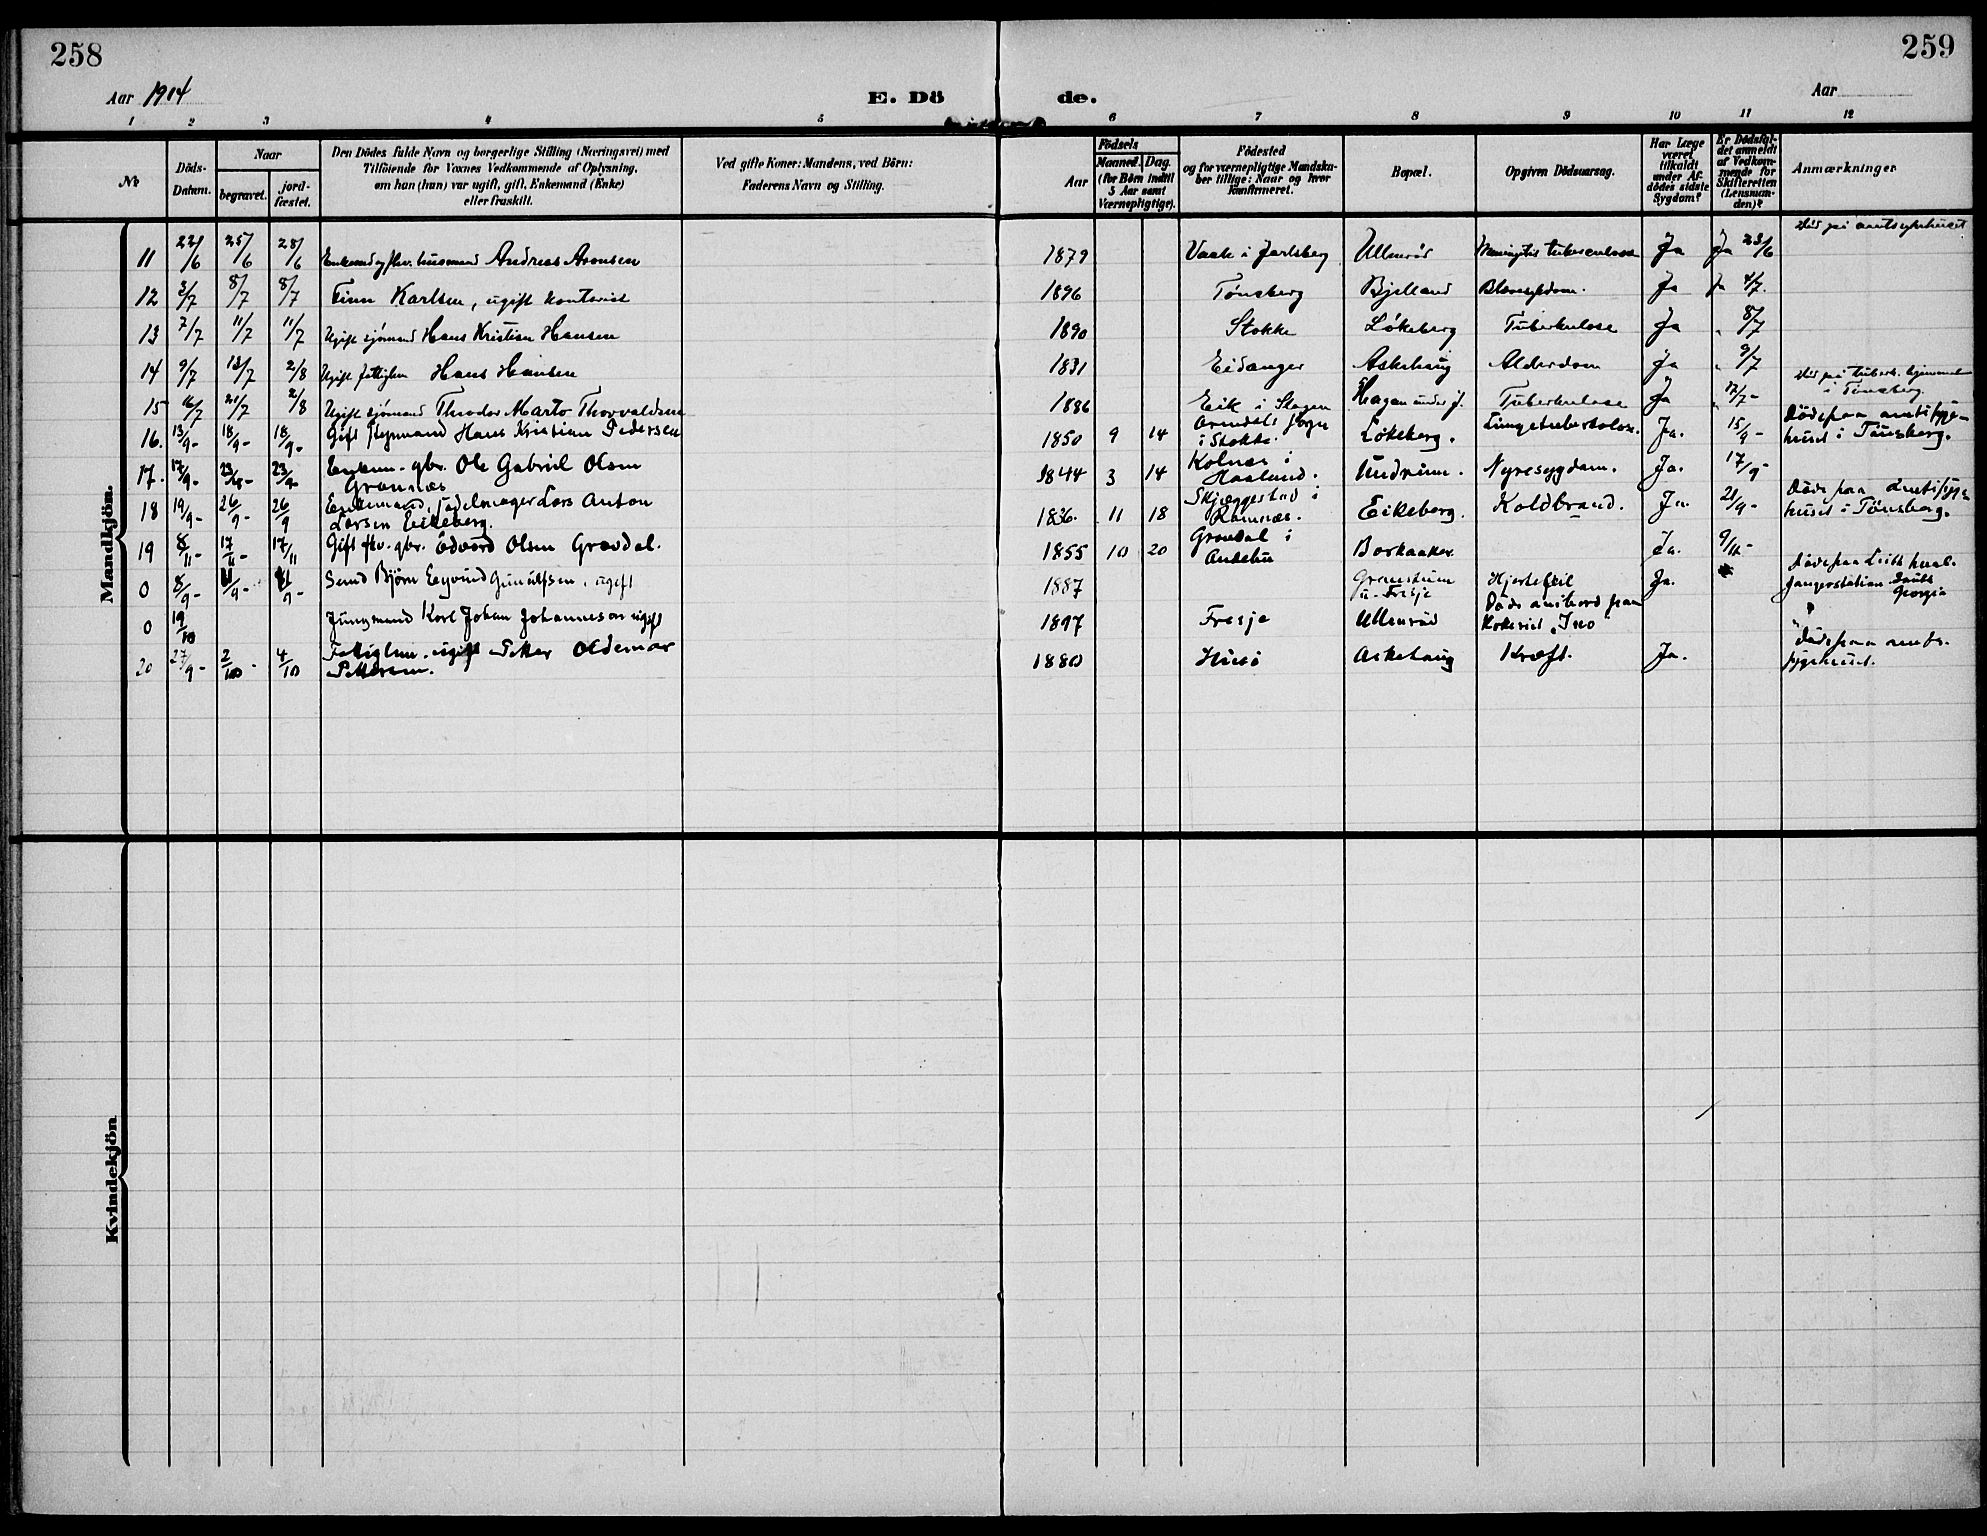 258
259
Aar 1914
E. Dö de.
Aar
1 2 3 4 5 6 7 8 9 10 11 12
No.
Döds-Datum.
Naar
begravet.
jord-fæstet.
Den Dödes fulde Navn og borgerlige Stilling (Næringsvei) med
Tilföiende for Voxnes Vedkommende af Oplysning,
om han (hun) var ugift, gift, Enkemand (Enke)
eller fraskilt.
Ved gifte Koner: Mandens, ved Börn:
Faderens Navn og Stilling.
Aar
Födsels
Maaned. Dag.
(for Börn indtil
5 Aar samt
Værnepligtige).
Födested
og for værnepligtige Mandska-
ber tillige: Naar og hvor
konfirmeret.
Bopæl.
Opgiven Dödsaarsag.
Har Læge
været
tilkaldt
under Af-
dödes sidste
Sygdom?
Er Dödsfal-
det anmeldt
af Vedkom-
mende for
Skifteretten
(Lensman-
den)?
Anmærkninger
Mandkjön.
Död på amtssykehuset
11 22/6 25/6 28/6 husmand Andreas Aronsen 1879 Vaale i Jarlsberg Ullerød tuberculosa Ja Ja 23/6
12 3/7 8/7 8/7 Finn Karlsen, ugift kontorist 1896 Tønsberg Bjelland Ja Ja 4/7.
13 7/7 11/7 11/7 Ugift sjømand Hans Kristian Hansen 1890 Stokke Løkeberg Tuberkulose Ja " 8/7
14 9/7 13/7 2/8 Ugift fattiglem Hans Hansen 1831 Eidanger Askehaug Alderdom Ja " 9/7
Död på tuberk. hjemmet
i Tønsberg
15 16/7 21/7 2/8 Ugift sjømand Theodor Marto Thorvaldsen 1886 Eik i Slagen Hagen under J. Tuberkulose Ja
16. 13/9- 18/9- 18/9- Gift Hans Kristian Pedersen 1850 9 14 i Stokke. Løkeberg. Lungetuberkulose. Ja. 15/9-
Døde paa amtssyge-
huset i Tønsberg.
17. 17/9- 23/9- 23/9- Enkem. gbr. Ole Gabriel Olsen
Grannæs 1844 3 14 Kolnæs i
Haaland. Undrum. Nyresygdom. Ja. 17/9-
18 19/9- 26/9- 26/9 Enkemand, sadelmager Lars Anton
Larsen Eikeberg. 1836. 11 18 Skjæggestad i
Ramnæs. Eikeberg. Koldbrand. Ja. 21/9-
Døde paa Amtssyge-
huset i Tønsberg.
19 8/11- 17/11- 17/11 Gift fhv. gbr. Edvard Olsen Gravdal. 1855 10 20 Gravdal i
Andebu Borkaaker. Ja. 9/11-
0 8/9- 11/9- Bjørn Eyvind Gunulfsen, ugift 1887 Hjertefeil Ja.
Døde paa Leith hval-
fangerstation South
Georgia
0 19/10 Jungmand Karl Johan Johannesen ugift 1897 Fresje Ullerød Døde ombord paa
Kokeriet "Ino"
20 27/9- 2/10- 4/10 Fattiglem. ugift Petter Oldemar
Pettersen. 1880 Husø Askehaug Kræft. Ja.
Døde paa amts-
sygehuset.
Kvindekjön